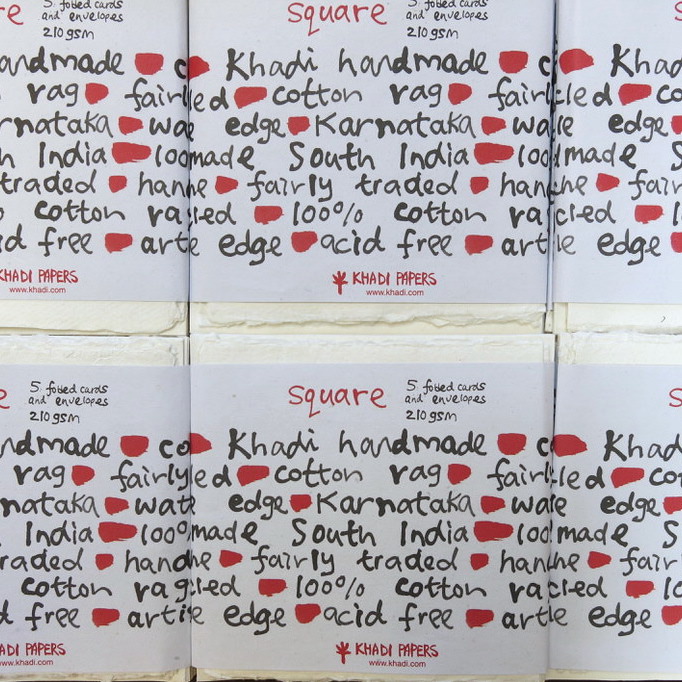 re
5 folded cards
and envelopes
210gsm
andmade c
rag fair
rnataka wa
h India 100
traded han
cotton ra
id free art
KHADI PAPERS
www.khadi.com
square
5 folded cards
and envelopes
210gsm
Khadi handmade c
led cotton rag fairl
edge Karnataka wa
made South India 100
ne fairly traded han
cled 100% cotton ra
le edge acid free art
KHADI PAPERS
www.khadi.com
s
Khad
cled co
le edge
made S
ne fair
cled 10
le edge
e
5 folded cards
and envelopes
210gsm
ndmade co
rag fairly
nataka wat
India 100%
raded hand
cotton rag
d free arti
ADI PAPERS
www.khadi.com
square
5 folded cards
and envelopes
210gsm
Khadi handmade c
led cotton rag fairl
edge Karnataka wa
made South India 100
ne fairly traded han
cled 100% cotton ra
e edge acid free art
KHADI PAPERS
www.khadi.com
s
Khad
cled cot
le edge
made S
ne fair
cled 10
le edge